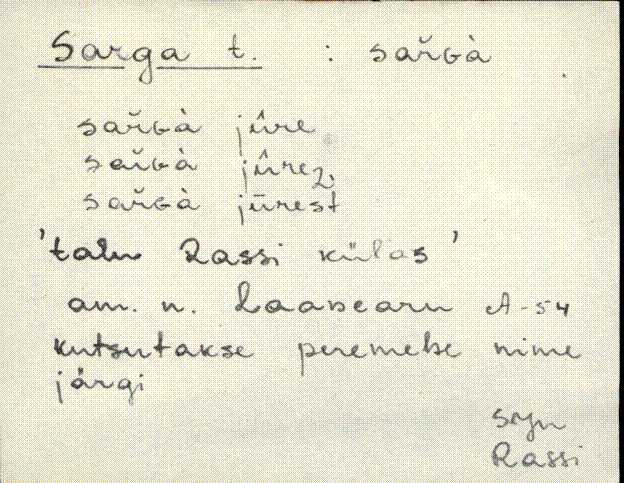 Sarga t. : sar̆ɢà
sar̆ɢà jûre
sar̆ɢà jûrez.
sar̆ɢà jūrest
'talu Rassi külas'
am. n. Laasearu A-54
kutsutakse peremehe nime
järgi
Syn
Rassi